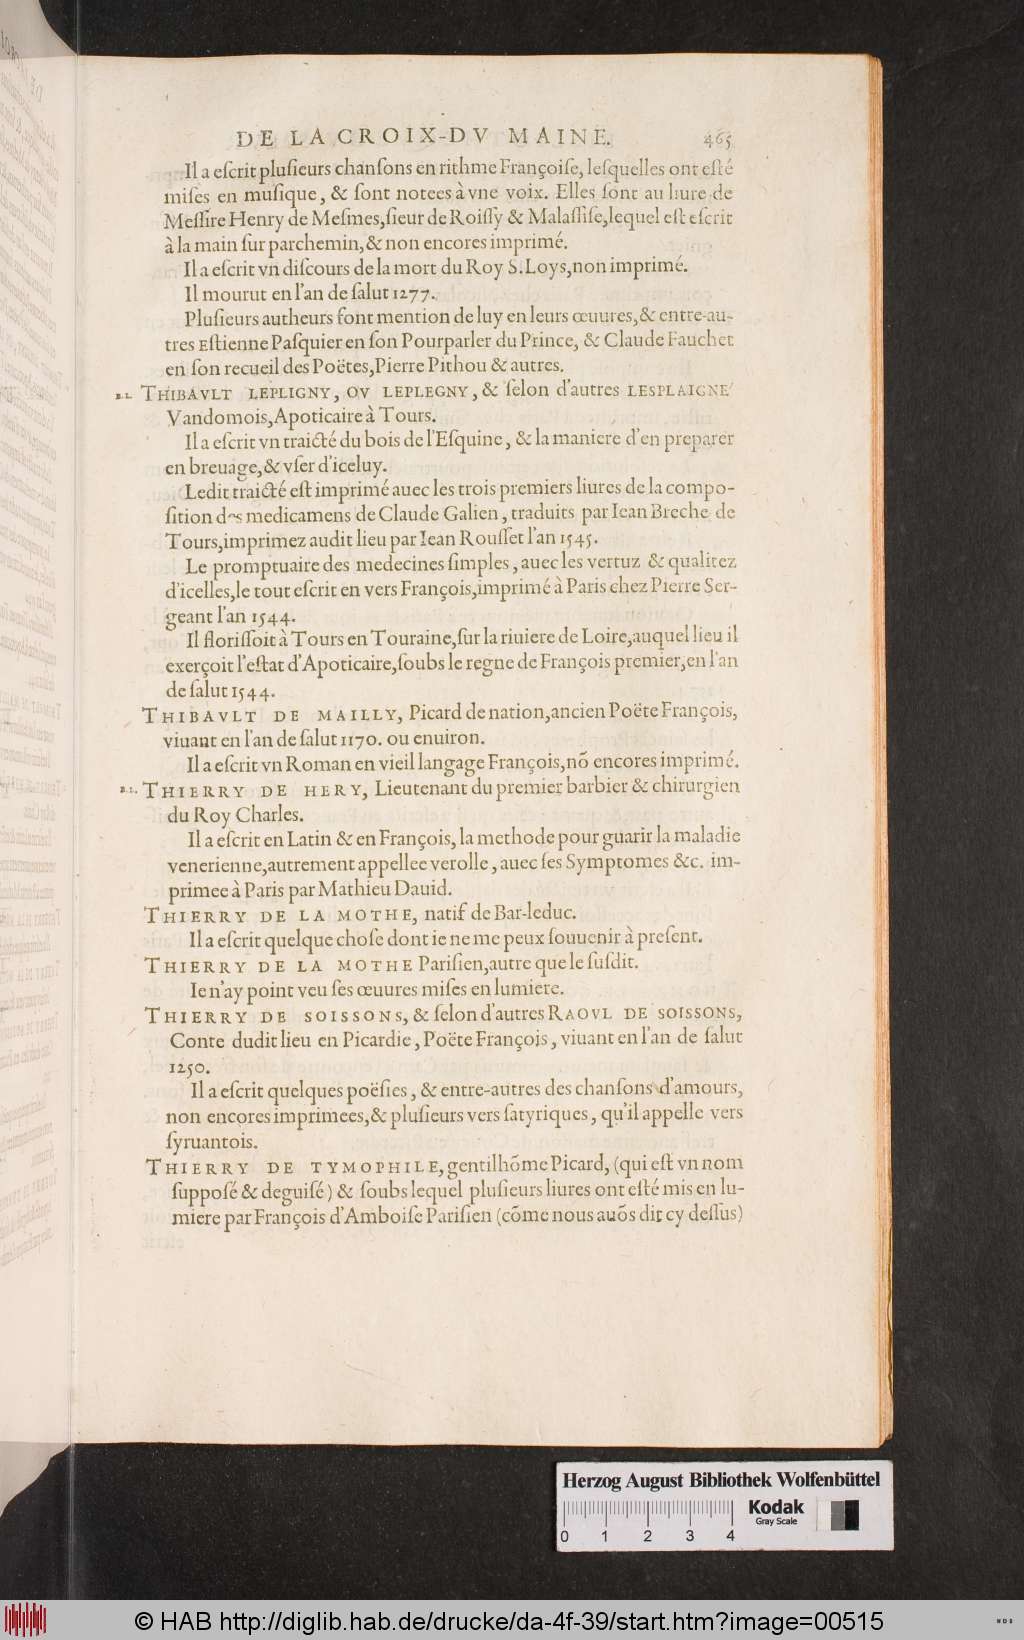 DE LA CROIX-DV MAINE. 465
Il a eſcrit pluſieurs chanſons en rithme Françoiſe, leſquelles ont eſté
miſes en muſique, & ſont notees à vne voix. Elles ſont au liure de
Meſſire Henry de Meſmes, ſieur de Roiſſy & Malaſſiſe, lequel eſt eſcrit
à la main ſur parchemin, & non encores imprimé.
Il a eſcrit vn diſcours de la mort du Roy S. Loys, non imprimé.
Il mourut en l'an de ſalut 1277.
Pluſieurs autheurs font mention de luy en leurs œuures, & entre-au-
tres Eſtienne Paſquier en ſon Pourparler du Prince, & Claude Fauchet
en ſon recueil des Poëtes, Pierre Pithou & autres.
B.L. THIBAVLT LEPLIGNY, OV LEPLEGNY, & ſelon d'autres LESPLAIGNE'
Vandomois, Apoticaire à Tours.
Il a eſcrit vn traicté du bois de l'Eſquine, & la maniere d'en preparer
en breuage, & vſer d'iceluy.
Ledit traicté eſt imprimé auec les trois premiers liures de la compo-
ſition des medicamens de Claude Galien, traduits par Iean Breche de
Tours, imprimez audit lieu par Iean Rouſſet l'an 1545.
Le promptuaire des medecines ſimples, auec les vertuz & qualitez
d'icelles, le tout eſcrit en vers François, imprimé à Paris chez Pierre Ser-
geant l'an 1544.
Il floriſſoit à Tours en Touraine, ſur la riuiere de Loire, auquel lieu il
exerçoit l'eſtat d'Apoticaire, ſoubs le regne de François premier, en l'an
de ſalut 1544.
THIBAVLT DE MAILLY, Picard de nation, ancien Poëte François,
viuant en l'an de ſalut 1170. ou enuiron.
Il a eſcrit vn Roman en vieil langage François, nō encores imprimé.
B.L. THIERRY DE HERY, Lieutenant du premier barbier & chirurgien
du Roy Charles.
Il a eſcrit en Latin & en François, la methode pour guarir la maladie
venerienne, autrement appellee verolle, auec ſes Symptomes &c. im-
primee à Paris par Mathieu Dauid.
THIERRY DE LA MOTHE, natif de Bar-leduc.
Il a eſcrit quelque choſe dont ie ne me peux ſouuenir à preſent.
THIERRY DE LA MOTHE Pariſien, autre que le ſuſdit.
Ie n'ay point veu ſes œuures miſes en lumiere.
THIERRY DE SOISSONS, & ſelon d'autres RAOVL DE SOISSONS,
Conte dudit lieu en Picardie, Poëte François, viuant en l'an de ſalut
1250.
Il a eſcrit quelques poëſies, & entre-autres des chanſons d'amours,
non encores imprimees, & pluſieurs vers ſatyriques, qu'il appelle vers
ſyruantois.
THIERRY DE TYMOPHILE, gentilhōme Picard, (qui eſt vn nom
ſuppoſé & deguiſé) & ſoubs lequel pluſieurs liures ont eſté mis en lu-
miere par François d'Amboiſe Pariſien (cōme nous auōs dit cy deſſus)
Herzog August Bibliothek Wolfenbüttel
Kodak
Gray Scale
0 1 2 3 4
© HAB http://diglib.hab.de/drucke/da-4f-39/start.htm?image=00515